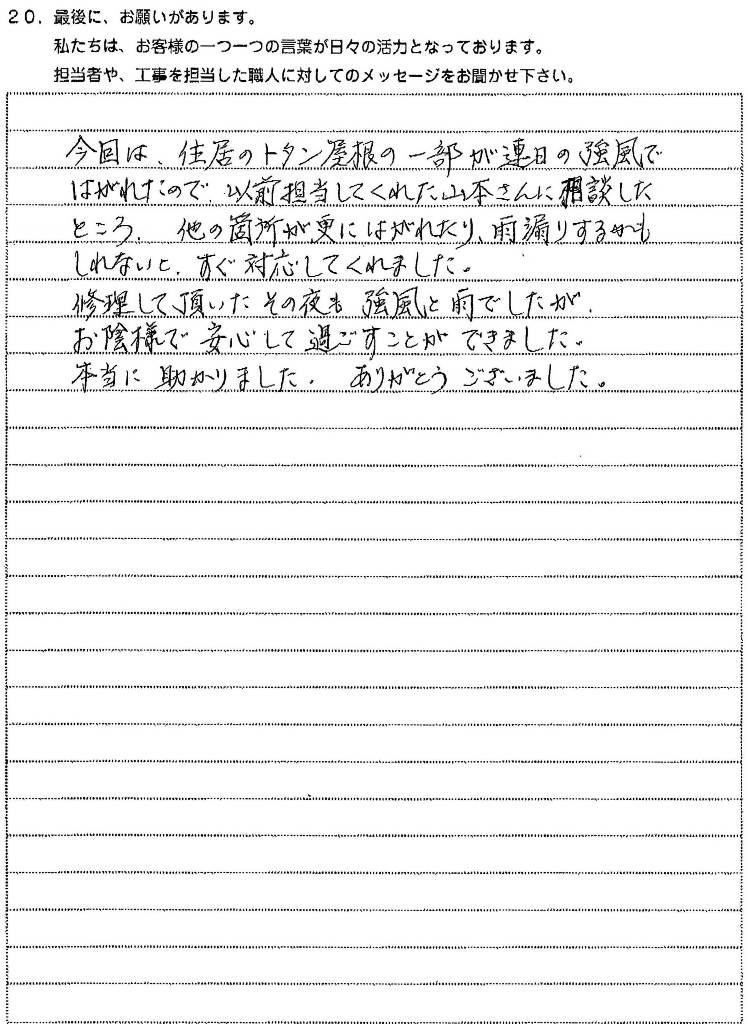 20．最後に、お願いがあります。
私たちは、お客様の一つ一つの言葉が日々の活力となっております。
担当者や、工事を担当した職人に対してのメッセージをお聞かせ下さい。
今回は、住居のトタン屋根の一部が連日の強風で
はがれたので、以前担当してくれた山本さんに相談した
ところ、他の箇所が更にはがれたり、雨漏りするかも
しれないと、すぐ対応してくれました。
修理して頂いたその夜も強風と雨でしたが、
お陰様で安心して過ごすことができました。
本当に助かりました。ありがとうございました。